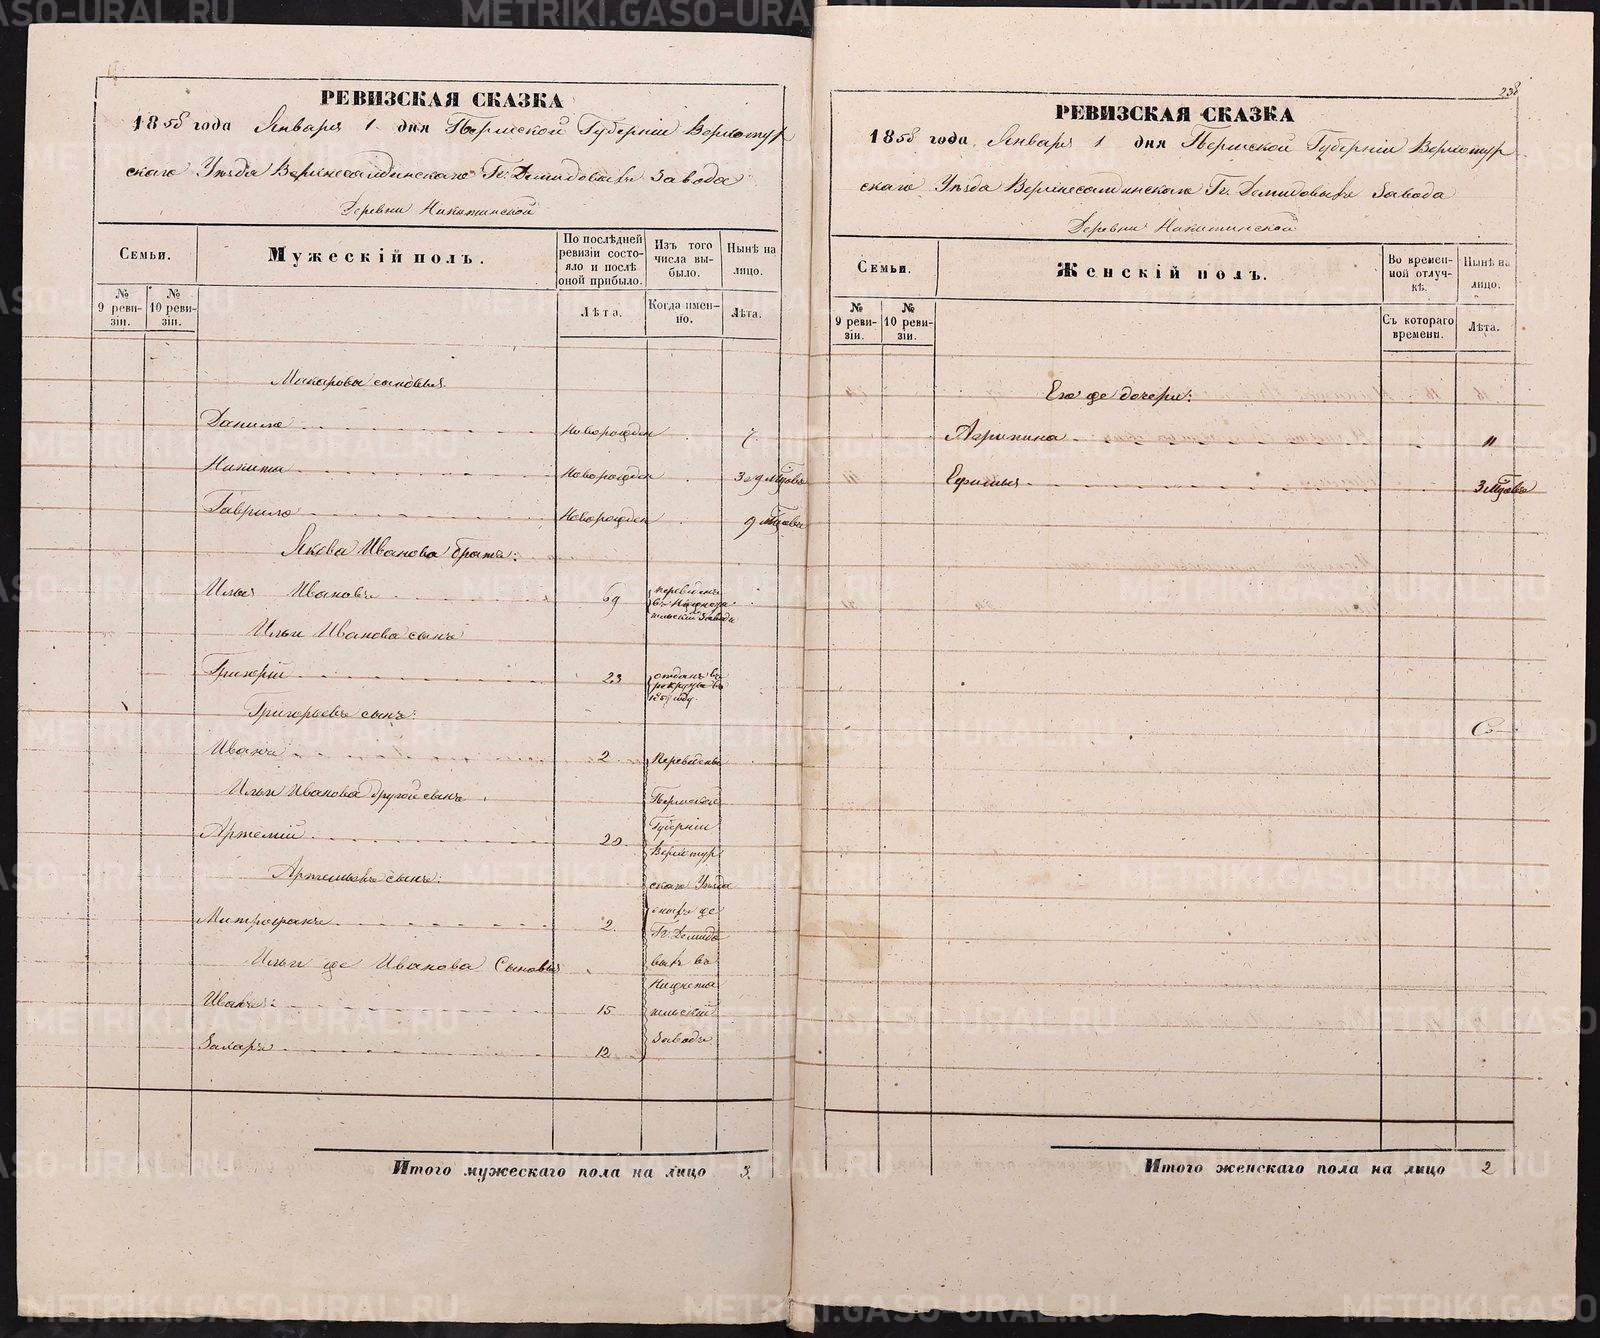 РЕВИЗСКАЯ СКАЗКА
1858 года Января 1 дня Пермской Губернiи Верхотур
скаго Уѣзда Верхнесалдинскаго Гг. Демидовыхъ завода
Деревни Никитинской
Семьи.
Мужескiй полъ.
По послѣдней ревизiи состояло и послѣ оной прибыло.
Изъ того числа выбыло.
Нынѣ на лицо.
№ 9 ревизiи.
№ 10 ревизiи.
Лѣта.
Когда именно.
Лѣта.
Макаровы сыновья
Данило Новорожден 7
Никита Новорожден 3 г 9 мѣцовъ
Гаврило Новорожден 9 мѣцовъ
Якова Иванова братъ:
Илья Ивановъ 69 переведенъ
въ Нижнета
гильскiй заводъ
Ильи Иванова сынъ
Григорiй 23 отданъ въ
рекруты въ
году
Григорьевъ сынъ:
Иванъ 2 Переведены
Ильи Иванова другой сынъ
Пермской
Губернiи
Артемiй 20
Верхотур
Артемьевъ сынъ:
скаго Уѣзда
Митрофанъ 2
тѣхъ же
Гг. Демидо
Ильи же Иванова Сыновья
выхъ въ
Нижнета
Иванъ 15
гильскiй
Захаръ 12
Заводъ
Итого мужескаго пола на лицо 3.
238
РЕВИЗСКАЯ СКАЗКА
1858 года Января 1 дня Пермской Губернiи Верхотур
скаго Уѣзда Верхнесалдинскаго Гг. Демидовыхъ Завода
Деревни Никитинской
Семьи.
Женскiй полъ.
Во временной отлучкѣ.
Нынѣ на лицо.
№ 9 ревизiи.
№ 10 ревизiи.
Съ котораго времени.
Лѣта.
Его же дочери:
Агрипина 11
Ефимья 3 мѣцовъ
Итого женскаго пола на лицо 2
METRIKI.GASO-URAL.RU